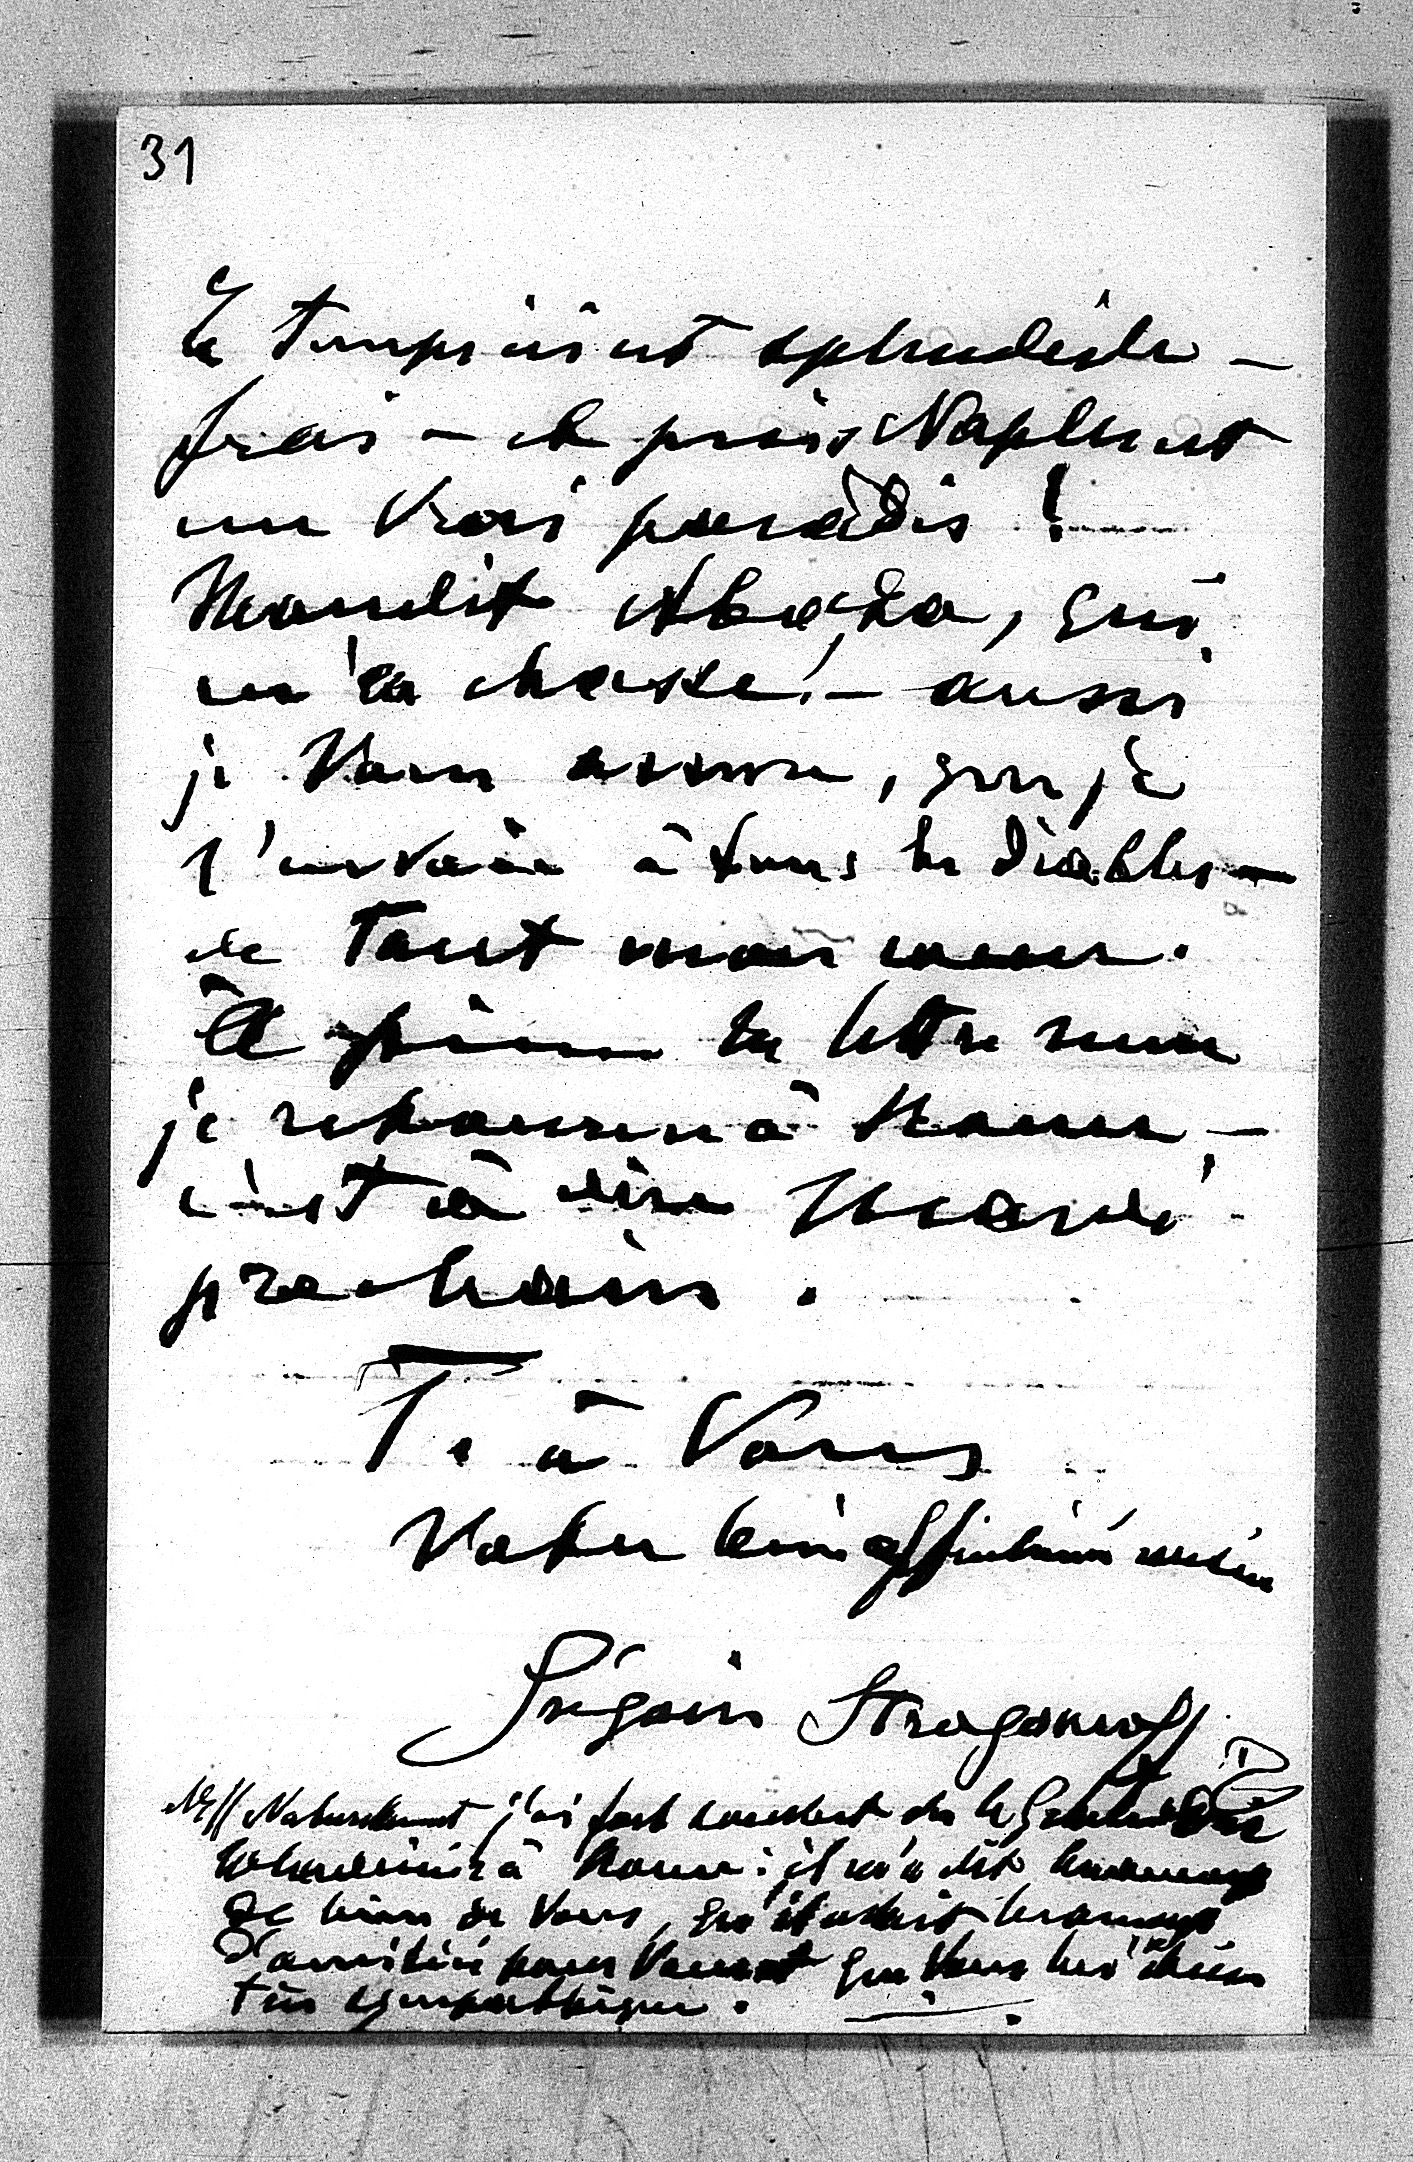 31
Le temps ici est splendide –
frais – et puis Naples est
un vrai paradis !
Maudit Abaza, qui
m'a chassé! – aussi
je Vous assure, que je
l'envoie à tous les Diables –
de tout mon coeur.
A peine la lettre reçue
je retourne à Rome –
c'est à dire Mardi
prochain.
T. à Vous
Votre bien affectionné cousin
Grégoire Stroganoff
NB// Naturellement j'ai fort
à Rome : il m'a dit beaucoup
de bien de Vous, qu'il avait beaucoup
d'amitié pour Vous et que Vous lui étiez
très sympathique.